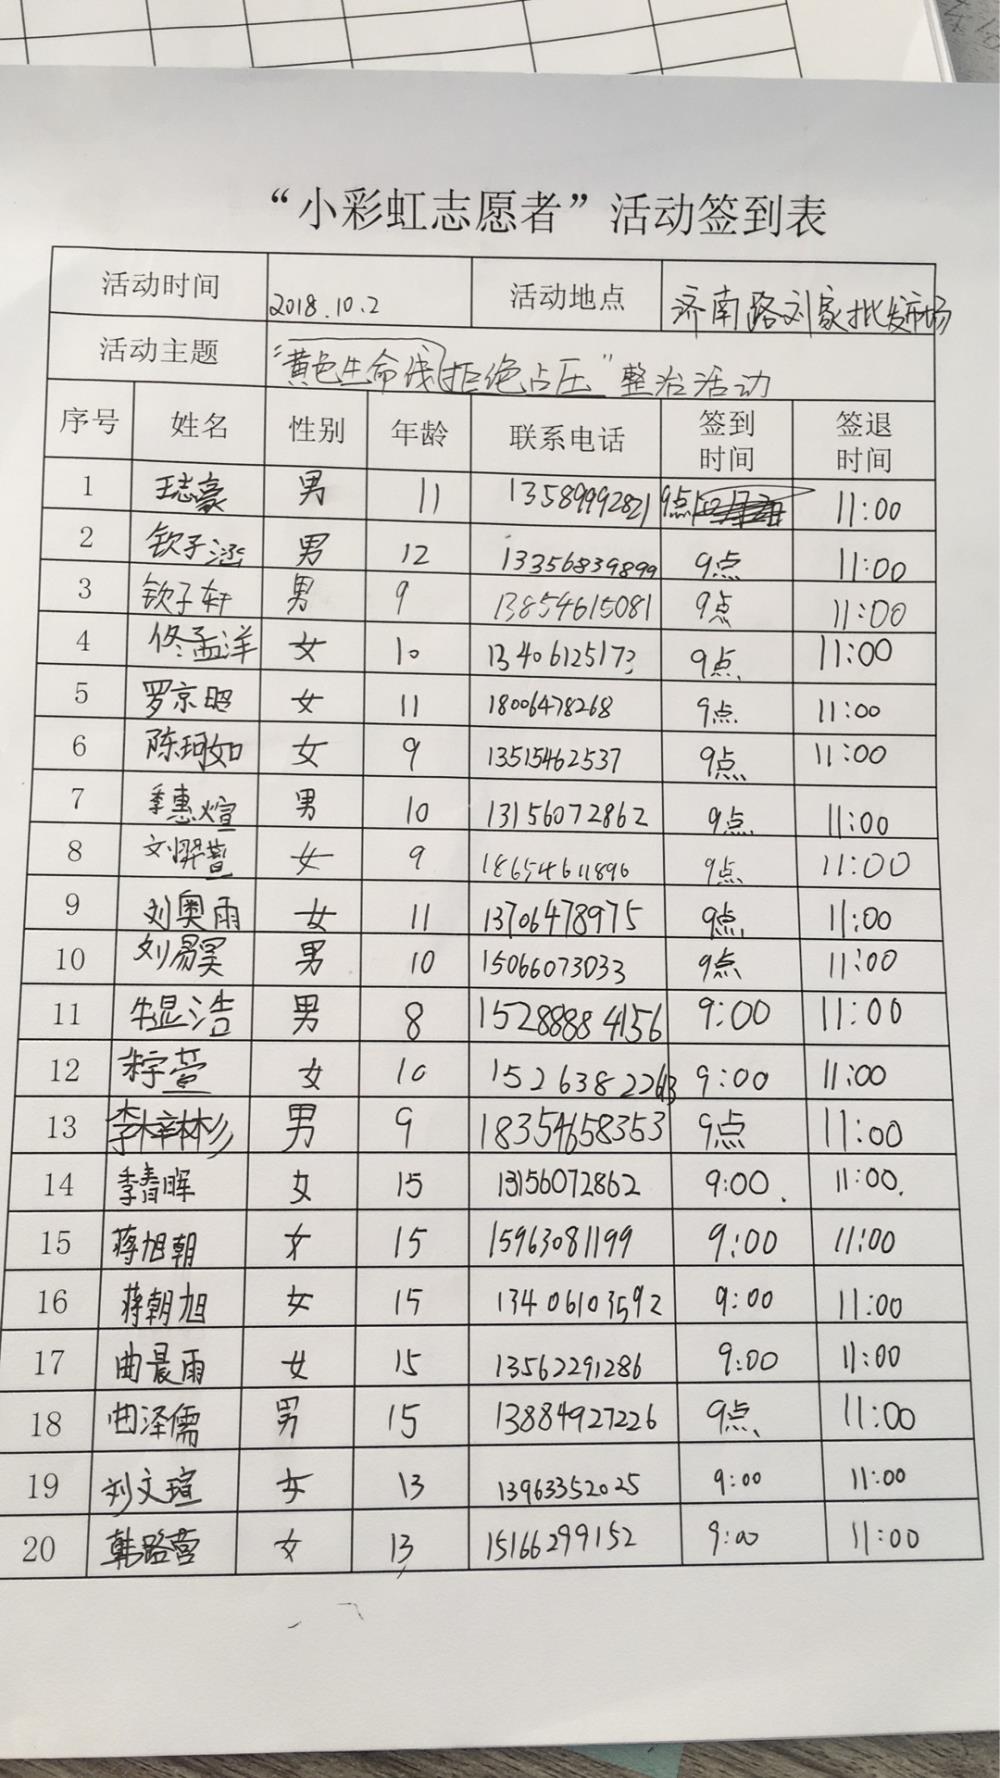 “小彩虹志愿者”活动签到表
活动时间 2018.10.2 活动地点 济南路刘家批发市场
活动主题 “黄色生命线拒绝占压”整治活动
序号 姓名 性别 年龄 联系电话 签到时间 签退时间
1 王志豪 男 11 13589992821 9点 11:00
2 钦子涵 男 12 13356839899 9点 11:00
3 钦子轩 男 9 13854615081 9点 11:00
4 佟孟洋 女 10 13406125173 9点 11:00
5 罗京昭 女 11 18006478268 9点 11:00
6 陈珂如 女 9 13515462537 9点 11:00
7 季惠煊 男 10 13156072862 9点 11:00
8 刘羿萱 女 9 18654611896 9点 11:00
9 刘奥雨 女 11 13706478975 9点 11:00
10 刘易昊 男 10 15066073033 9点 11:00
11 牛显浩 男 8 15288884156 9:00 11:00
12 宋宇萱 女 10 9:00 11:00
13 李梓彬 男 9 18354658353 9点 11:00
14 季春晖 女 15 13156072862 9:00. 11:00.
15 蒋旭朝 女 15 15963081199 9:00 11:00
16 蒋朝旭 女 15 13406103592 9:00 11:00
17 曲晨雨 女 15 13562291286 9:00 11:00
18 曲泽儒 男 15 13884927226 9点 11:00
19 刘文瑄 女 13 13963352025 9:00 11:00
20 韩路营 女 13 15166299152 9:00 11:00